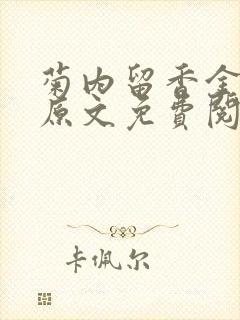 菊内留香全
原文免费阅
卡佩尔